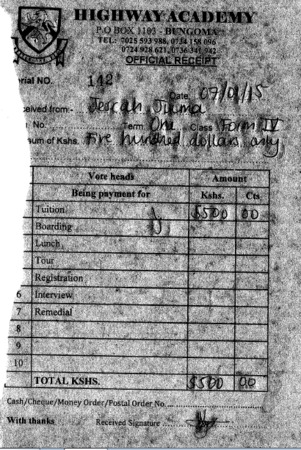 HIGHWAY ACADEMY
P.O BOX 1103 - BUNGOMA
TEL: 0725 593 986, 0734 158 096
0724 928 621, 0736 341 942
OFFICIAL RECEIPT
erial NO. 142
Date 07/01/15
ceived from:- Jescah Juma
No. Term One Class Form IV
um of Kshs. Five hundred dollars only
Vote heads Amount
Being payment for Kshs. Cts
Tuition $500 00
Boarding
Lunch
Tour
Registration
6 Interview
7 Remedial
8
9
10
TOTAL KSHS. $500 00
Cash/Cheque/Money Order/Postal Order No.
With thanks Received Signature